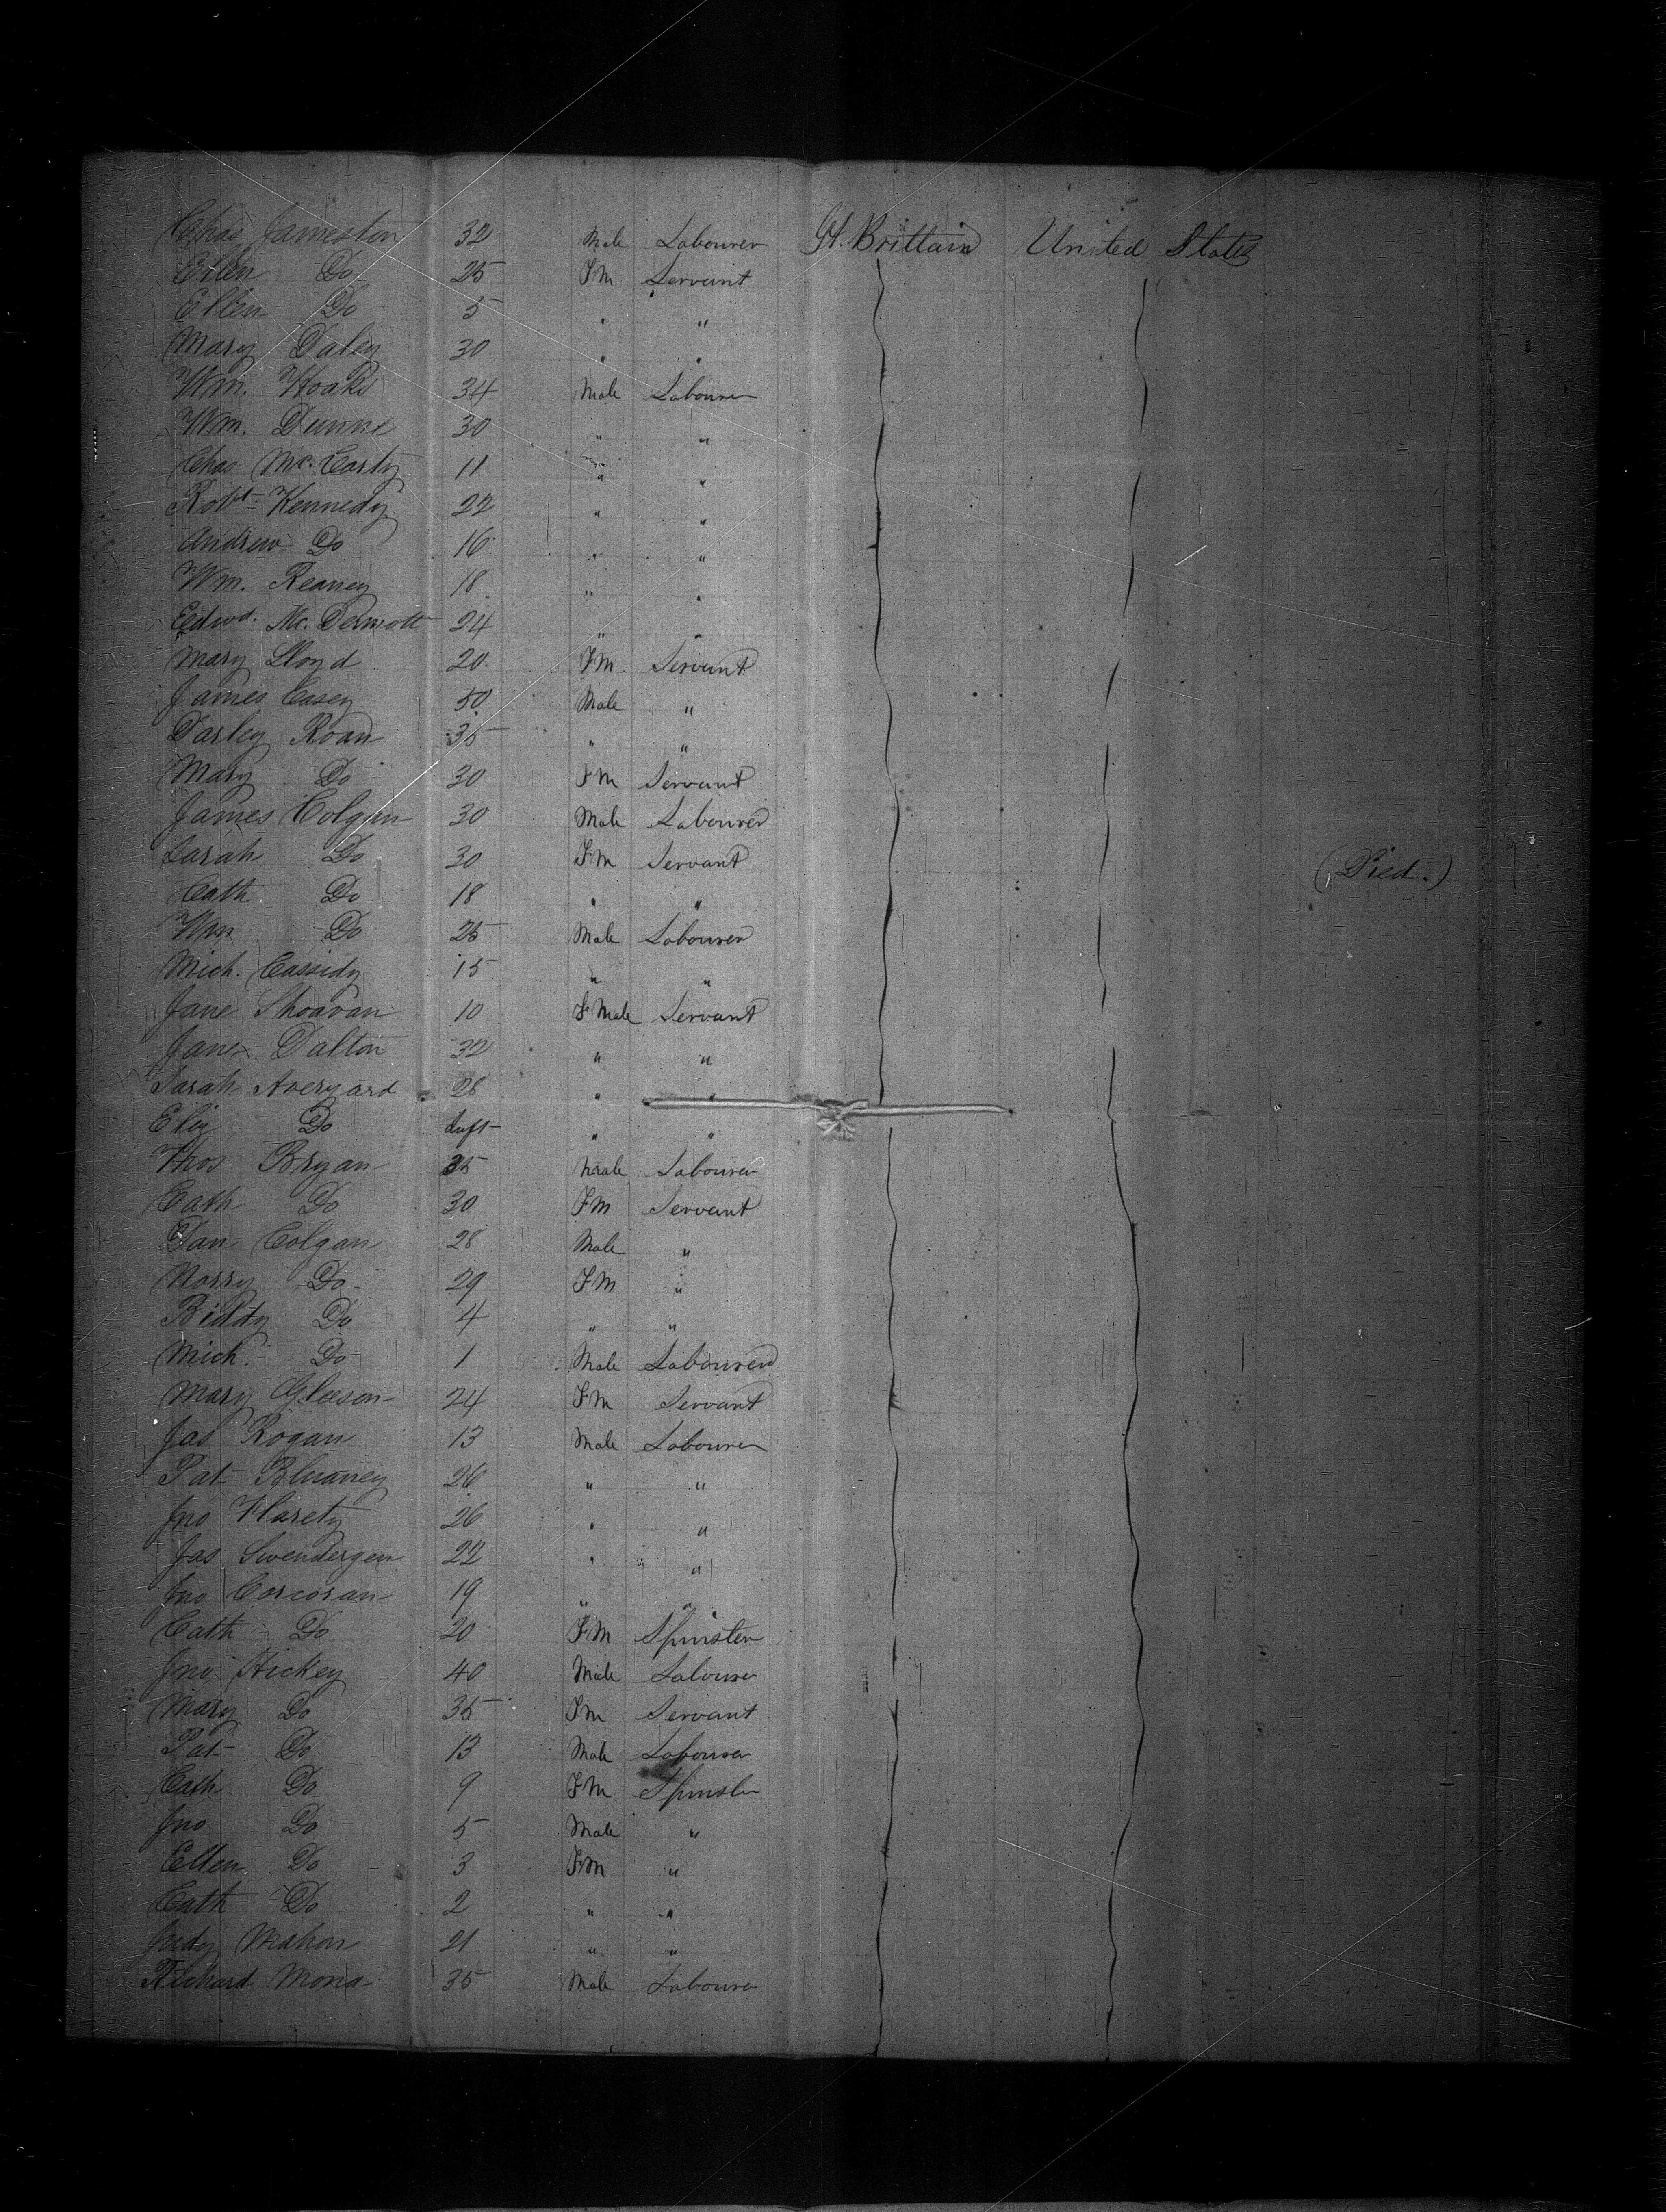 Chas Jameston 32 Male Labourer Gt. Brittain United States
Ellen Do 25 FM Servant
Ellen Do 5 " "
Mary Daley 30 " "
Wm. Hoaks 34 Male Labourer
Wm. Dunne 30 " "
Chas Mc. Carty 11 " "
Robt Kennedy 22 " "
Andrew Do 16 " "
Wm. Reaney 18 " "
Edwd. Mc. Dermott 24 " "
Mary Lloyd 20 FM Servant
James Casey 50 Male "
Darley Roan 35 " "
Mary Do 30 FM Servant
James Colgan 30 Male Labourer
Sarah Do 30 FM Servant (Died.)
Cath Do 18 " "
Wm Do 25 Male Labourer
Mich. Cassidy 15 " "
Jane Shoavan 10 F Male Servant
Jane Dalton 32 " "
Sarah Averyard 28 " "
Eliz Do Inft " "
Thos Bryan 35 Male Labourer
Cath Do 30 FM Servant
Dan Colgan 28 Male "
Norry Do 29 FM "
Biddy Do 4 " "
Mich. Do 1 Male Labourer
Mary Gleeson 24 FM Servant
Jas Rogan 13 Male Labourer
Pat 26 " "
Jno Flarety 26 " "
Jas Swendergen 22 " "
Jno Corcoran 19 " "
Cath Do 20 FM Spinster
Jno Hickey 40 Male Labourer
Mary Do 35 FM Servant
Pat Do 13 Male Labourer
Cath. Do 9 FM Spinster
Jno Do 5 Male "
Ellen Do 3 FM "
Cath Do 2 " "
Judy Mahon 21 " "
Richard Mona 35 Male Labourer